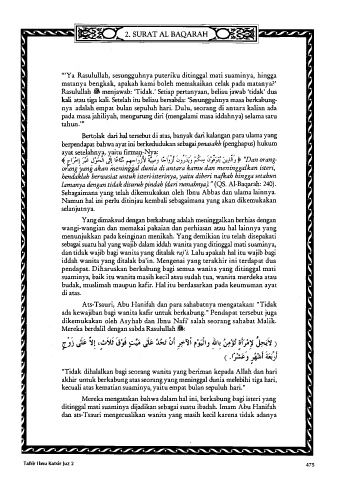 2. SURAT AL BAQARAH
"'Ya Rasulullah, sesungguhnya puteriku ditinggal mati suaminya, hingga
matanya bengkak, apakah kami boleh memakaikan celak pada matanya?'
Rasulullah ﷺ menjawab: 'Tidak.' Setiap pertanyaan, beliau jawab 'tidak' dua
kali atau tiga kali. Setelah itu beliau bersabda: 'Sesungguhnya masa berkabung-
nya adalah empat bulan sepuluh hari. Dulu, seorang di antara kalian ada
pada masa jahiliyah, mengurung diri (mengalami masa iddahnya) selama satu
tahun.'"
Bertolak dari hal tersebut di atas, banyak dari kalangan para ulama yang
berpendapat bahwa ayat ini berkedudukan sebagai penasakh (penghapus) hukum
ayat setelahnya, yaitu firman-Nya:
﴿ وَالَّذِينَ يُتَوَفَّوْنَ مِنكُمْ وَيَذَرُونَ أَزْوَاجًا وَصِيَّةً لِّأَزْوَاجِهِم مَّتَاعًا إِلَى الْحَوْلِ غَيْرَ إِخْرَاجٍ ﴾ "Dan orang-
orang yang akan meninggal dunia di antara kamu dan meninggalkan isteri,
hendaklah berwasiat untuk isteri-isterinya, yaitu diberi nafkah hingga setahun
lamanya dengan tidak disuruh pindah (dari rumahnya)." (QS. Al-Baqarah: 240).
Sebagaimana yang telah dikemukakan oleh Ibnu Abbas dan ulama lainnya.
Namun hal ini perlu ditinjau kembali sebagaimana yang akan dikemukakan
selanjutnya.
Yang dimaksud dengan berkabung adalah meninggalkan berhias dengan
wangi-wangian dan memakai pakaian dan perhiasan atau hal lainnya yang
menunjukkan pada keinginan menikah. Yang demikian itu telah disepakati
sebagai suatu hal yang wajib dalam iddah wanita yang ditinggal mati suaminya,
dan tidak wajib bagi wanita yang ditalak raj'i. Lalu apakah hal itu wajib bagi
iddah wanita yang ditalak ba'in. Mengenai yang terakhir ini terdapat dua
pendapat. Diharuskan berkabung bagi semua wanita yang ditinggal mati
suaminya, baik itu wanita masih kecil atau sudah tua, wanita merdeka atau
budak, muslimah maupun kafir. Hal itu berdasarkan pada keumuman ayat
di atas.
Ats-Tsauri, Abu Hanifah dan para sahabatnya mengatakan: "Tidak
ada kewajiban bagi wanita kafir untuk berkabung." Pendapat tersebut juga
dikemukakan oleh Asyhab dan Ibnu Nafi' salah seorang sahabat Malik.
Mereka berdalil dengan sabda Rasulullah ﷺ:
( لاَ يَحِلُّ لاِمْرَأَةٍ تُؤْمِنُ بِاللهِ وَالْيَوْمِ الآخِرِ أَنْ تُحِدَّ عَلَى مَيِّتٍ فَوْقَ ثَلاَثٍ، إِلاَّ عَلَى زَوْجٍ
أَرْبَعَةَ أَشْهُرٍ وَعَشْرًا. )
"Tidak dihalalkan bagi seorang wanita yang beriman kepada Allah dan hari
akhir untuk berkabung atas seorang yang meninggal dunia melebihi tiga hari,
kecuali atas kematian suaminya, yaitu empat bulan sepuluh hari."
Mereka mengatakan bahwa dalam hal ini, berkabung bagi isteri yang
ditinggal mati suaminya dijadikan sebagai suatu ibadah. Imam Abu Hanifah
dan ats-Tsauri mengecualikan wanita yang masih kecil karena tidak adanya
Tafsir Ibnu Katsir Juz 2
475